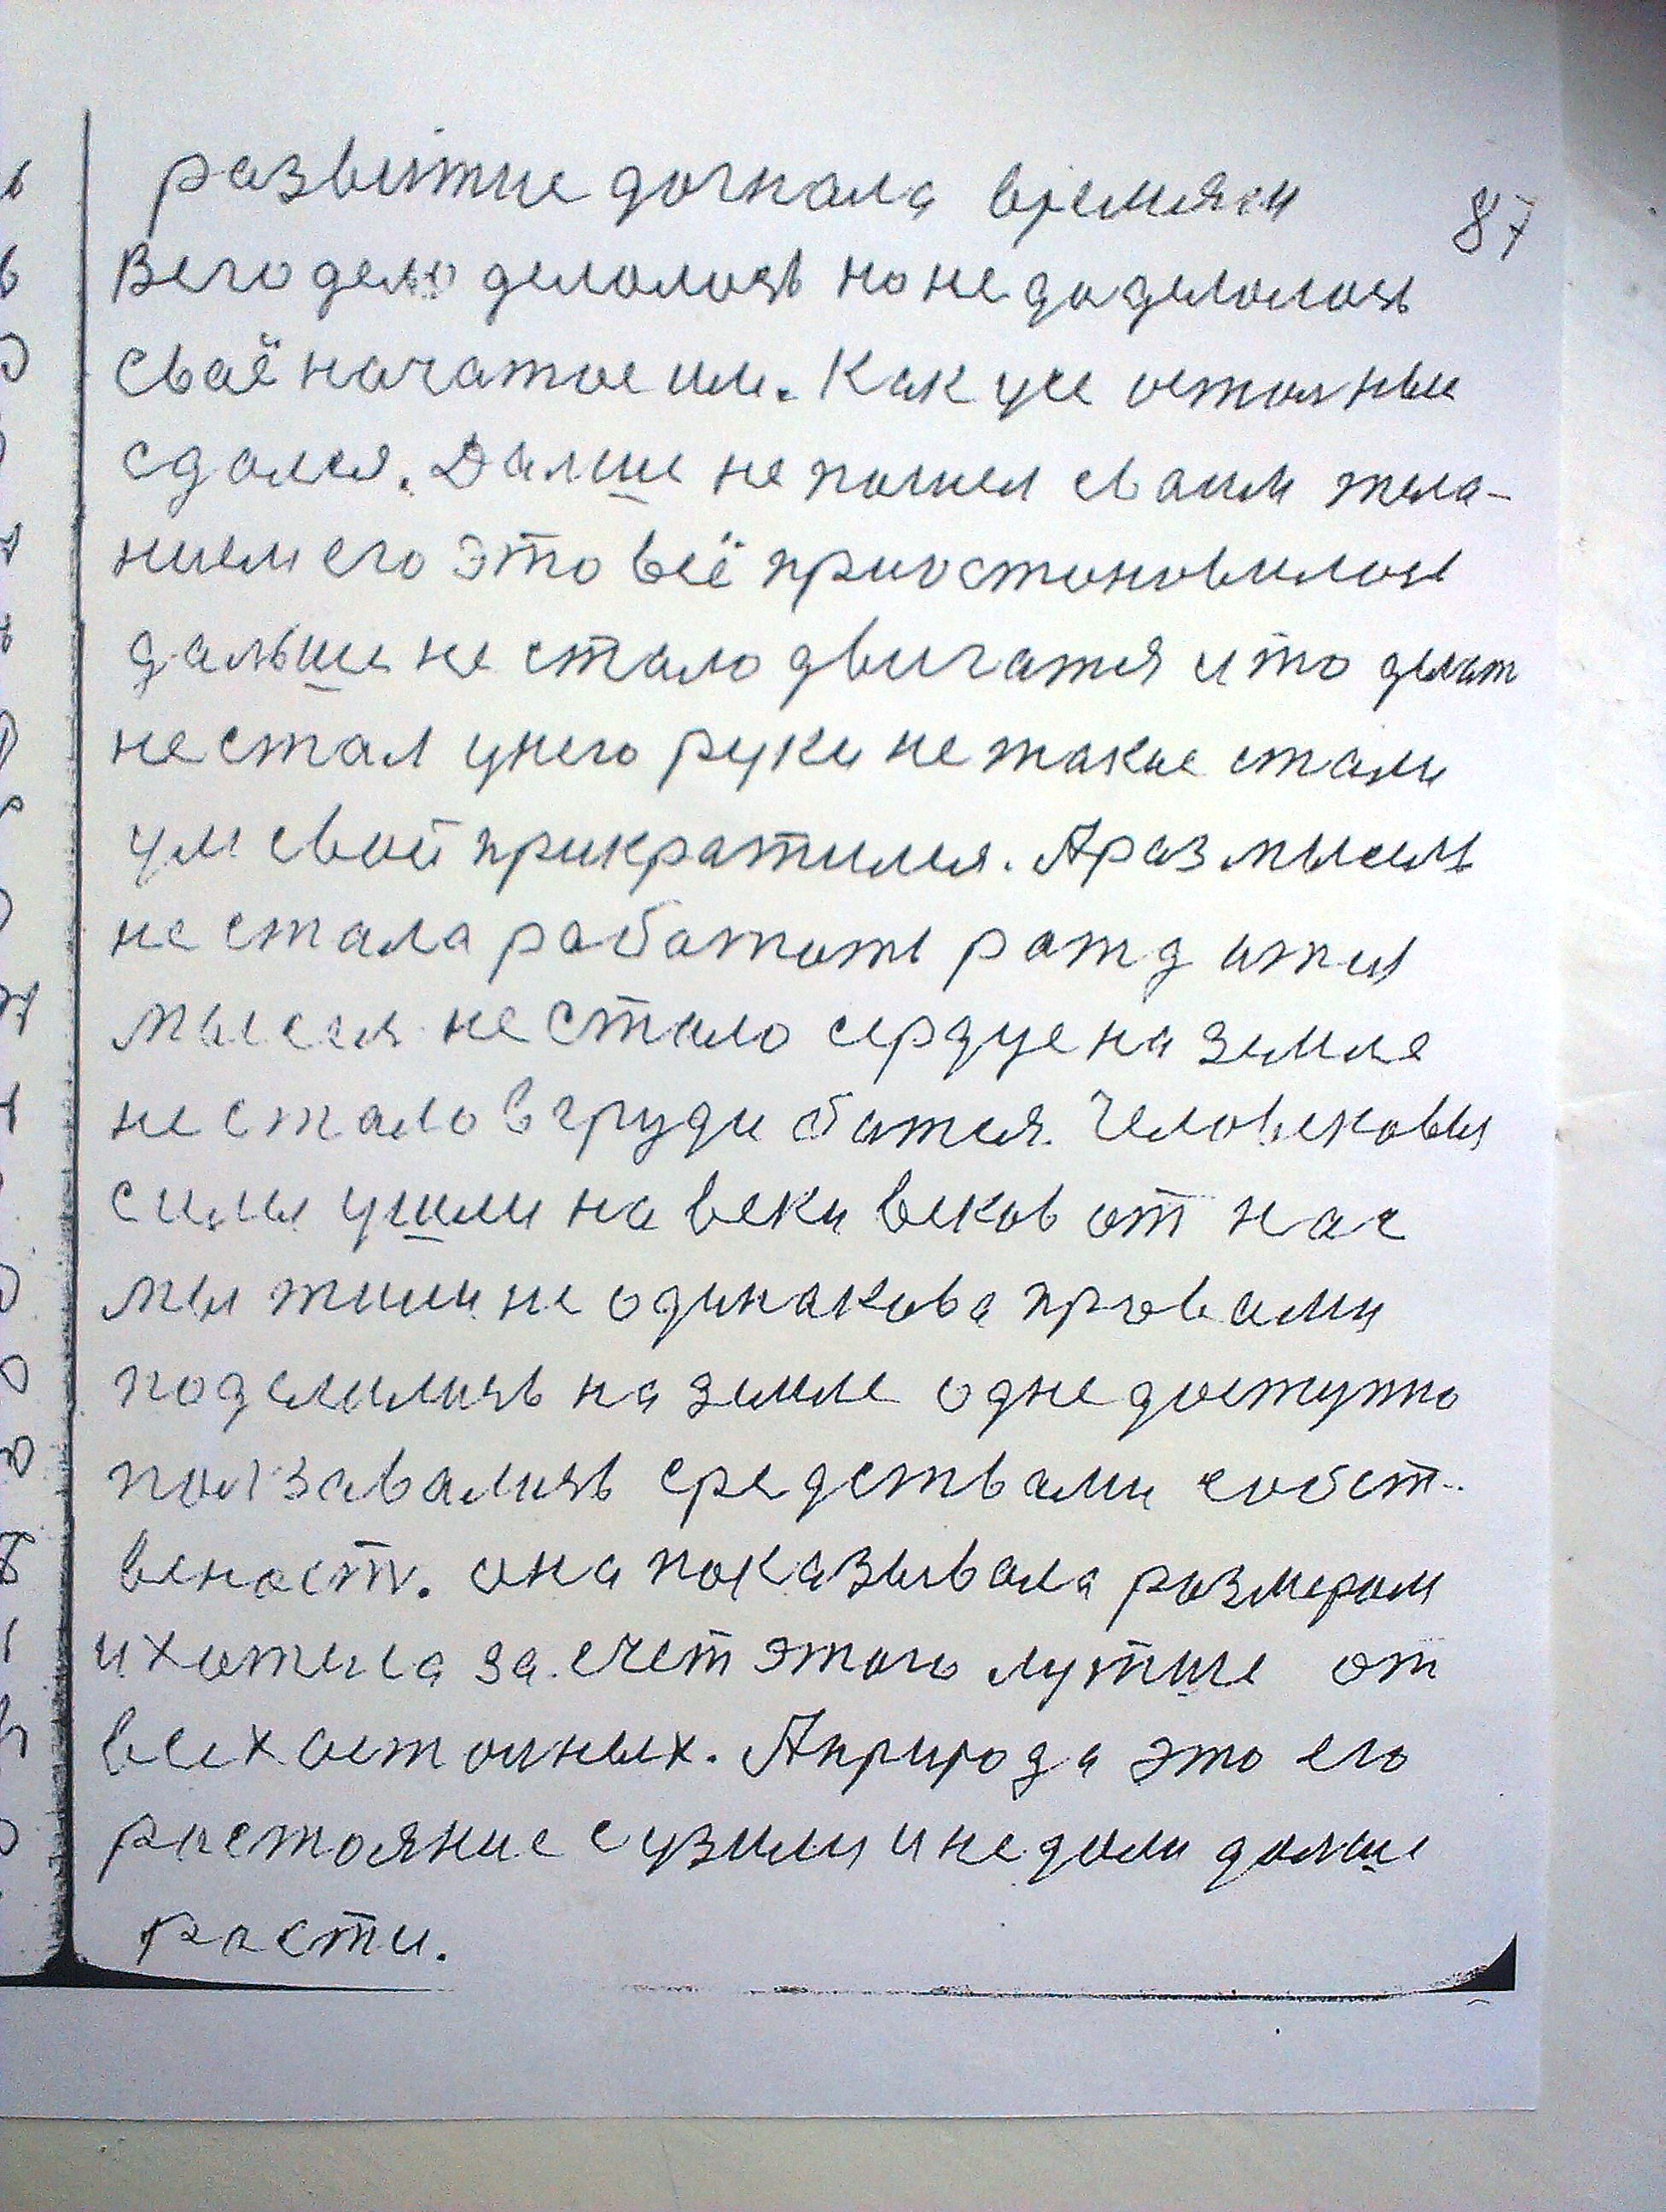 развитие догнала времями
87
Вего дело делолось но не доделолось
сваё начатое им. Как усе остолные
сдолся. Далше не пошел сваим жела-
нием его это всё приостоновилось
дальше не стало двигатся ито делат
не стал унего руки не такие стали
ум свой прикратился. Араз мысль
не стала работоть ратдатся
мысля не стало сердце на земле
не стало в груди батся. Человековы
силы ушли на веки веков от нас
мы жили не одинакова провами
поделились на земле одне доступно
ползавались средствами собст-
веност. она показывала розмером
ихотела за счет этого лутше от
всех остолных. Априрода это его
растояние сузили и недоли долше
расти.